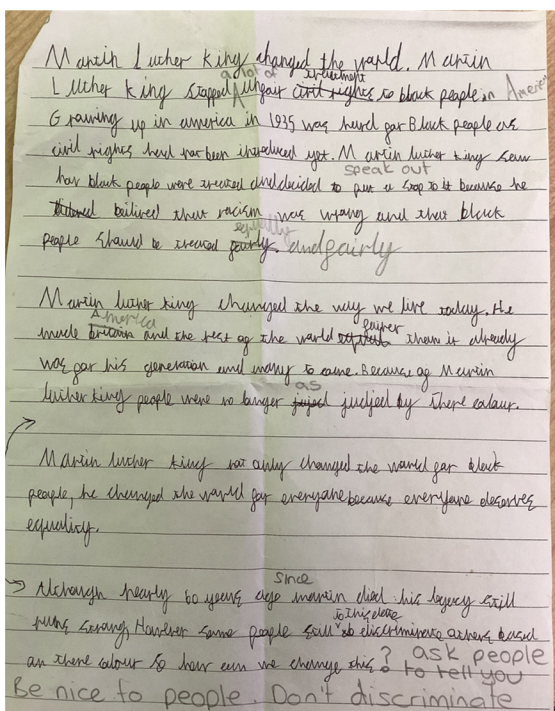 Martin Luther King changed the world. Martin
Luther King stopped a lot of unfair civil rights treatment to black people in America
Growing up in america in 1935 was hard for Black people as
civil rights had not been introduced yet. Martin luther king saw
how black people were treated and decided to put a stop to it speak out because he
beilived that racism was wrong and that black
people should be treated fairly. equally and fairly
Martin luther king changed the way we live today. He
made britain America and the rest of the world fairer then it already
was for his generation and many to come. Because of Martin
luther king people were no longer as judjed by there colour.
Martin luther king not only changed the world for black
people, he changed the world for everyone because everyone deserves
equality.
Although nearly 60 years ago since martin died his legacy still
runs strong, However some people still to this date discriminate others based
on there colour so how can we change this? ask people
to tell you
Be nice to people. Don't discriminate